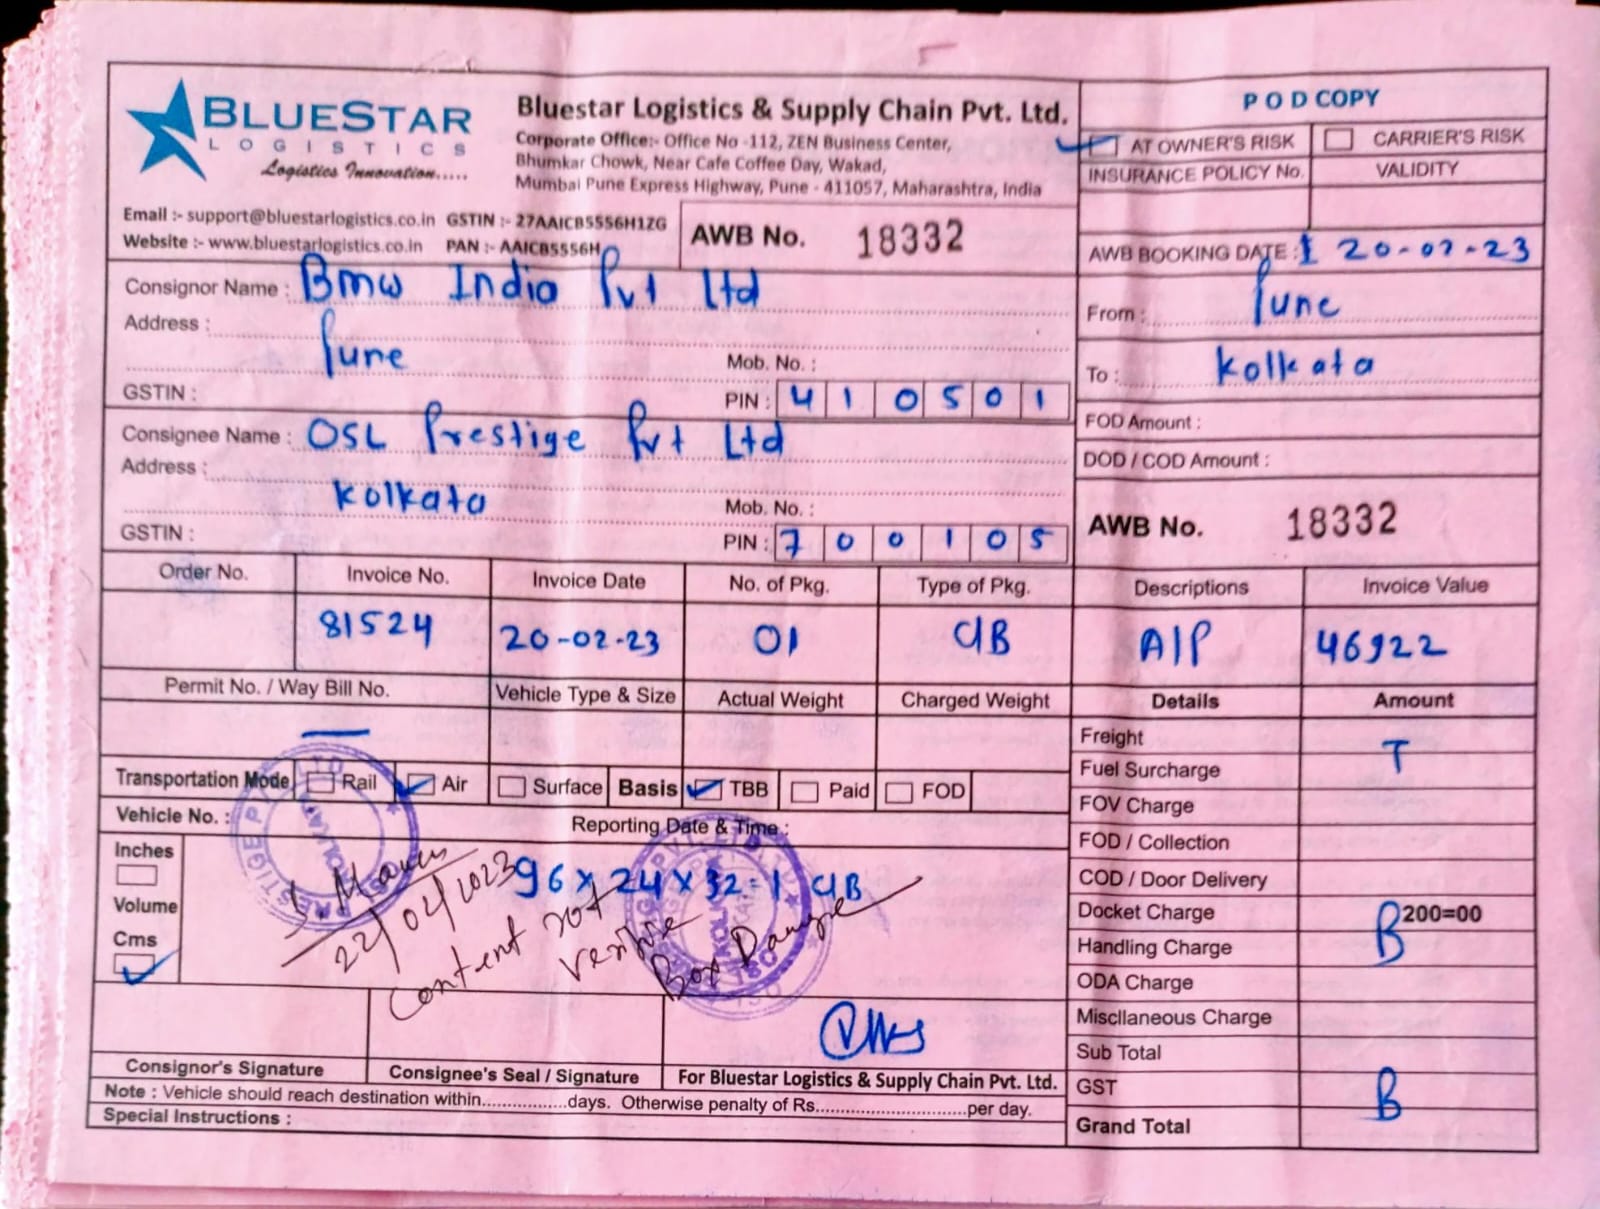 BLUESTAR
LOGISTICS
Logistics Innovation.....
Bluestar Logistics & Supply Chain Pvt. Ltd.
Corporate Office:- Office No -112, ZEN Business Center,
Bhumkar Chowk, Near Cafe Coffee Day, Wakad,
Mumbai Pune Express Highway, Pune - 411057, Maharashtra, India
Email :- support@bluestarlogistics.co.in GSTIN :- 27AAICB5556H1ZG
Website :- www.bluestarlogistics.co.in PAN :- AAICB5556H
AWB No. 18332
POD COPY
AT OWNER'S RISK CARRIER'S RISK
INSURANCE POLICY No. VALIDITY
AWB BOOKING DATE : 20-02-23
Consignor Name : Bmw India Pvt Ltd
Address :
Pune
Mob. No. :
GSTIN : PIN : 410501
From : Pune
To : Kolkata
Consignee Name : OSL Prestige Pvt Ltd
Address :
Kolkata
Mob. No. :
GSTIN : PIN : 700105
FOD Amount :
DOD / COD Amount :
AWB No. 18332
Order No. Invoice No. Invoice Date No. of Pkg. Type of Pkg. Descriptions Invoice Value
81524 20-02-23 01 CIB AIP 46922
Permit No. / Way Bill No. Vehicle Type & Size Actual Weight Charged Weight Details Amount
Transportation Mode Rail Air Surface Basis TBB Paid FOD
Vehicle No. : Reporting Date & Time :
Inches
Volume
Cms
96 x 24 x 32 = 1 CIB
22/02/2023
Content not
Box
Freight T
Fuel Surcharge
FOV Charge
FOD / Collection
COD / Door Delivery
Docket Charge 200=00
Handling Charge B
ODA Charge
Miscllaneous Charge
Sub Total
GST B
Grand Total
Consignor's Signature Consignee's Seal / Signature For Bluestar Logistics & Supply Chain Pvt. Ltd.
Note : Vehicle should reach destination within.................days. Otherwise penalty of Rs...........................per day.
Special Instructions :